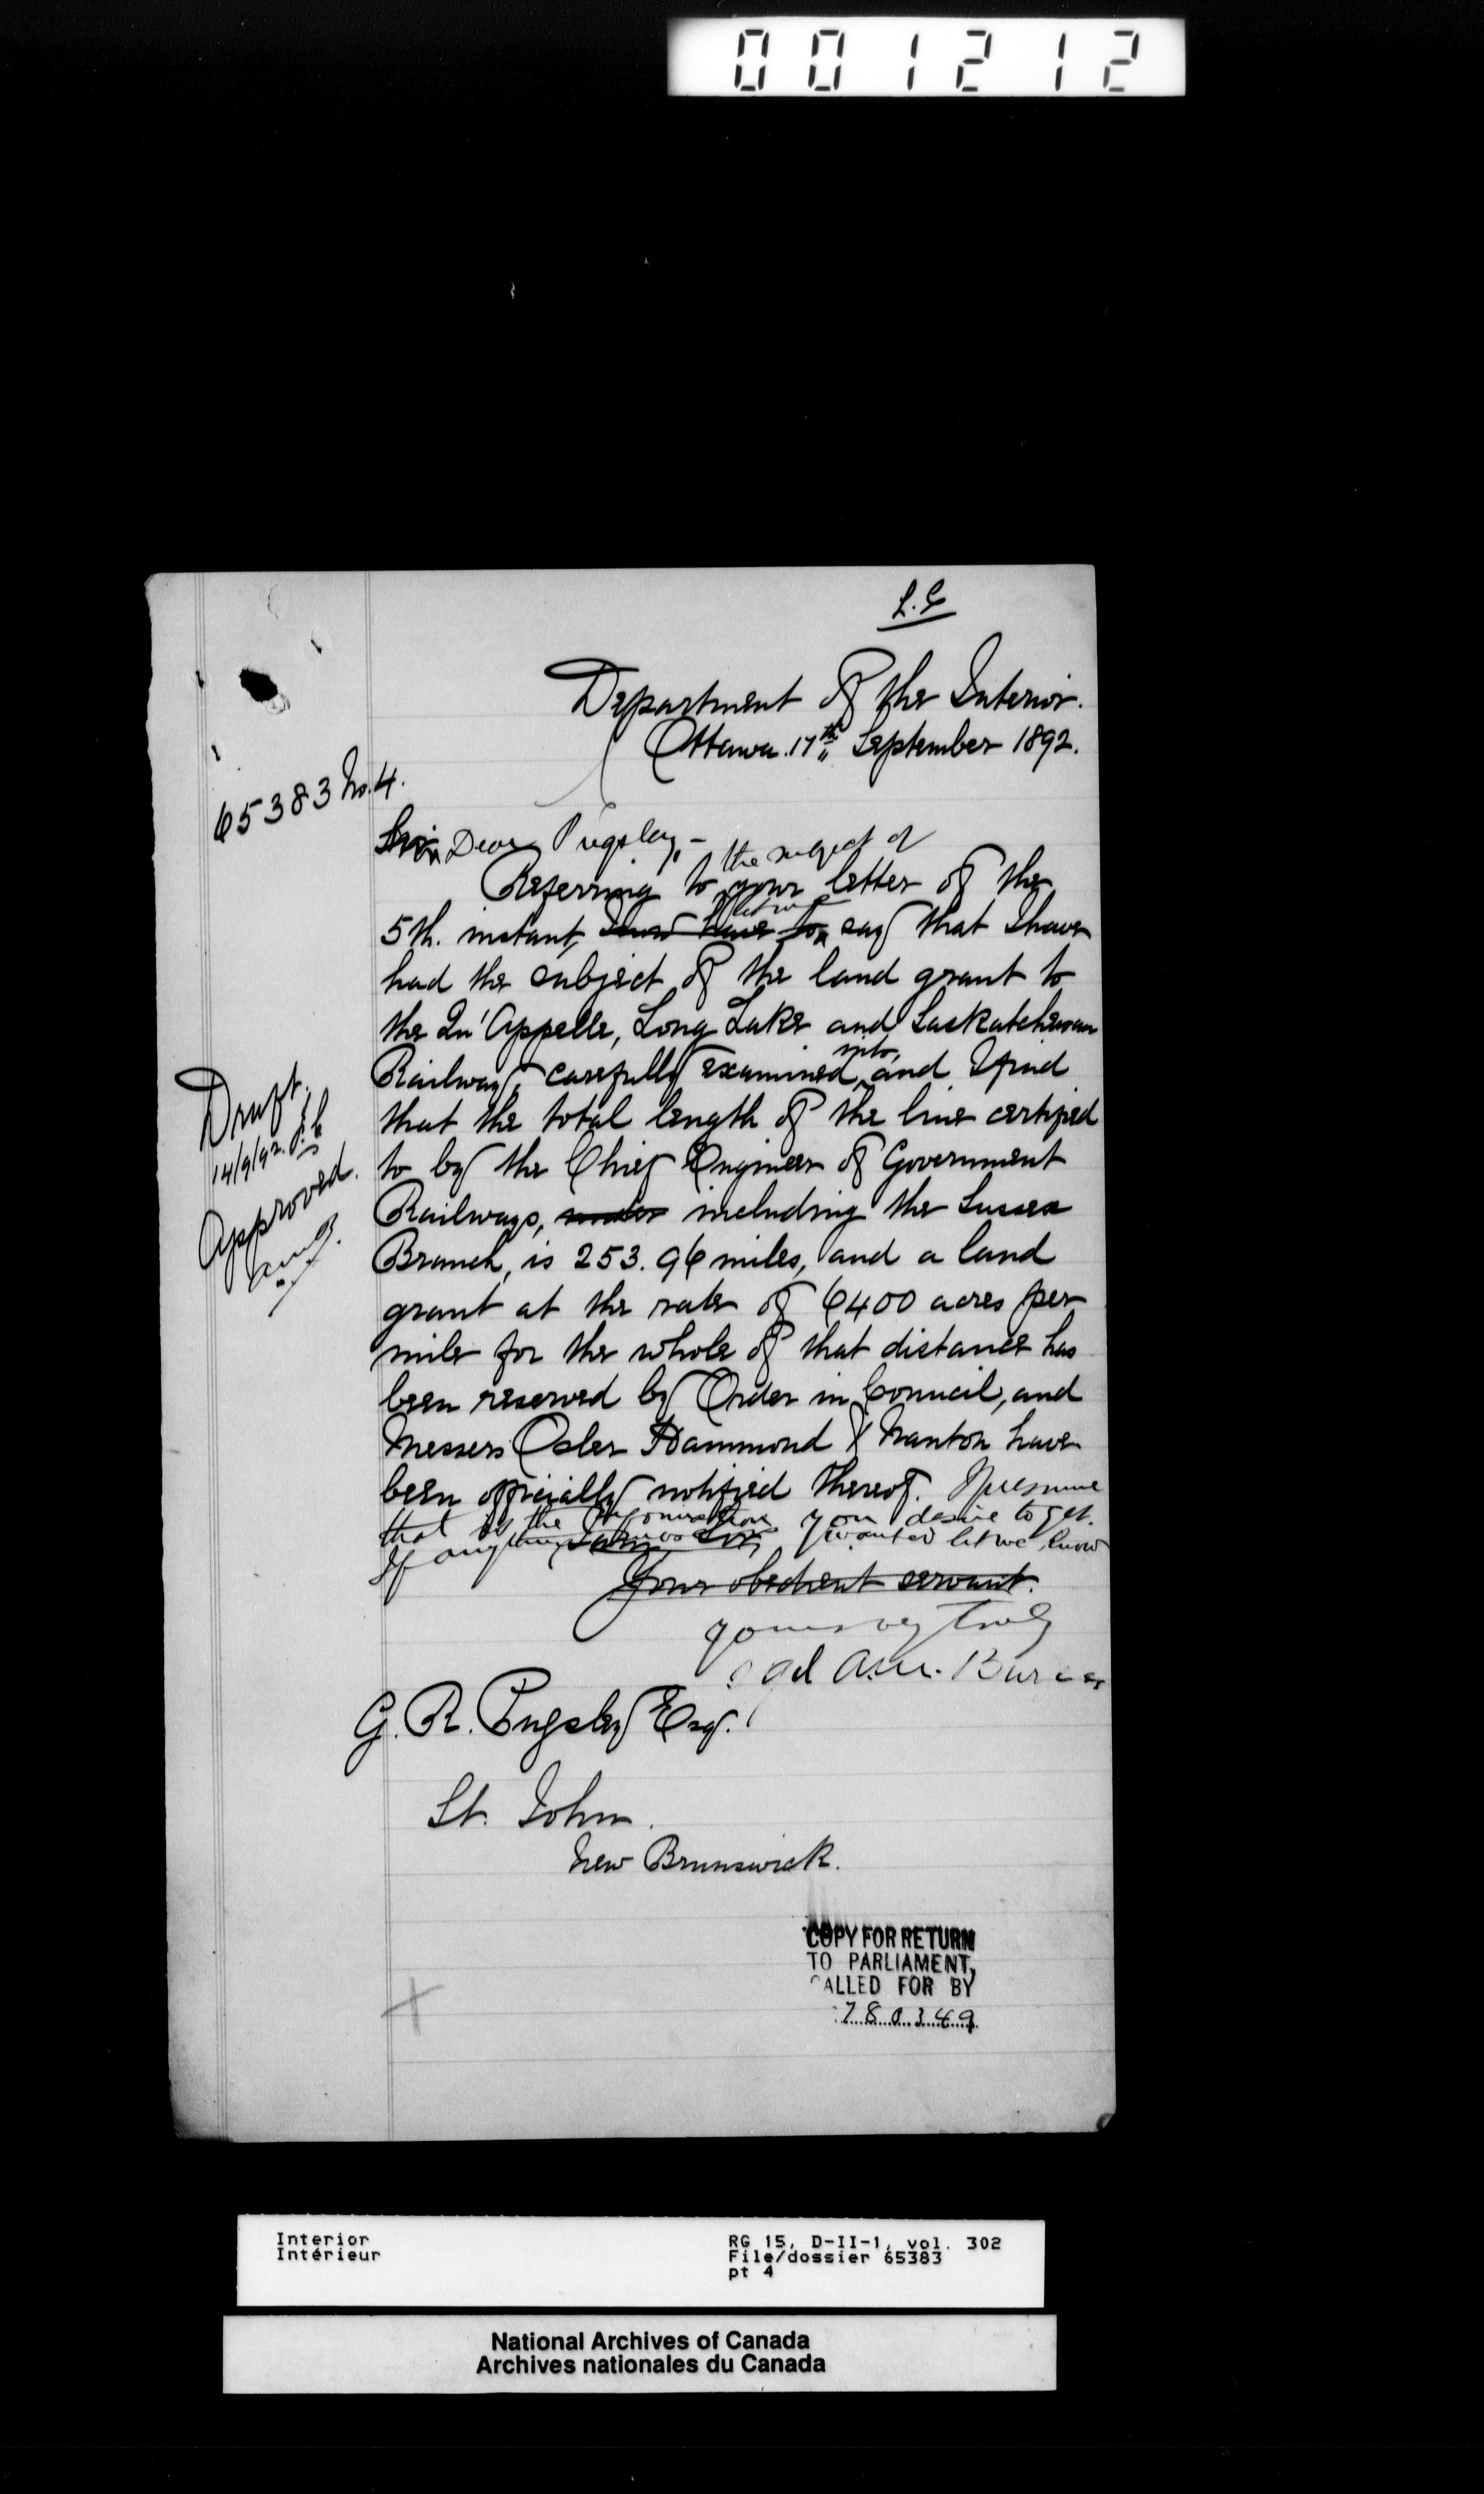 001212
L.C
Department of the Interior.
Ottawa. 17th September 1892.
65383 No. 4.
Sir, Dear Pugsley, -
the subject of
Referring to your letter of the
let me
5th. instant, I now have to say that I have
had the subject of the land grant to
the Qu'Appelle, Long Lake and Saskatchewan
into,
Railway, carefully examined and I find
that the total length of the line certified
to by the Chief Engineer of Government
Railways, under including the Sussex
Branch, is 253.96 miles, and a land
grant at the rate of 6400 acres per
mile for the whole of that distance has
been reserved by Order in Council, and
Messers Osler Hammond & Nanton have
been officially notified thereof. I presume
that is the information you desire to get.
If anything wanted let me know
Your obedient servant.
yours very truly
sgd A.M. Burgess
Draft.
14/9/92.
Approved.
G. R. Pugsley Esq.
St. John.
New Brunswick.
COPY FOR RETURN
TO PARLIAMENT,
CALLED FOR BY
780349
Interior
Intérieur
RG 15, D-II-1, vol. 302
File/dossier 65383
pt 4
National Archives of Canada
Archives nationales du Canada